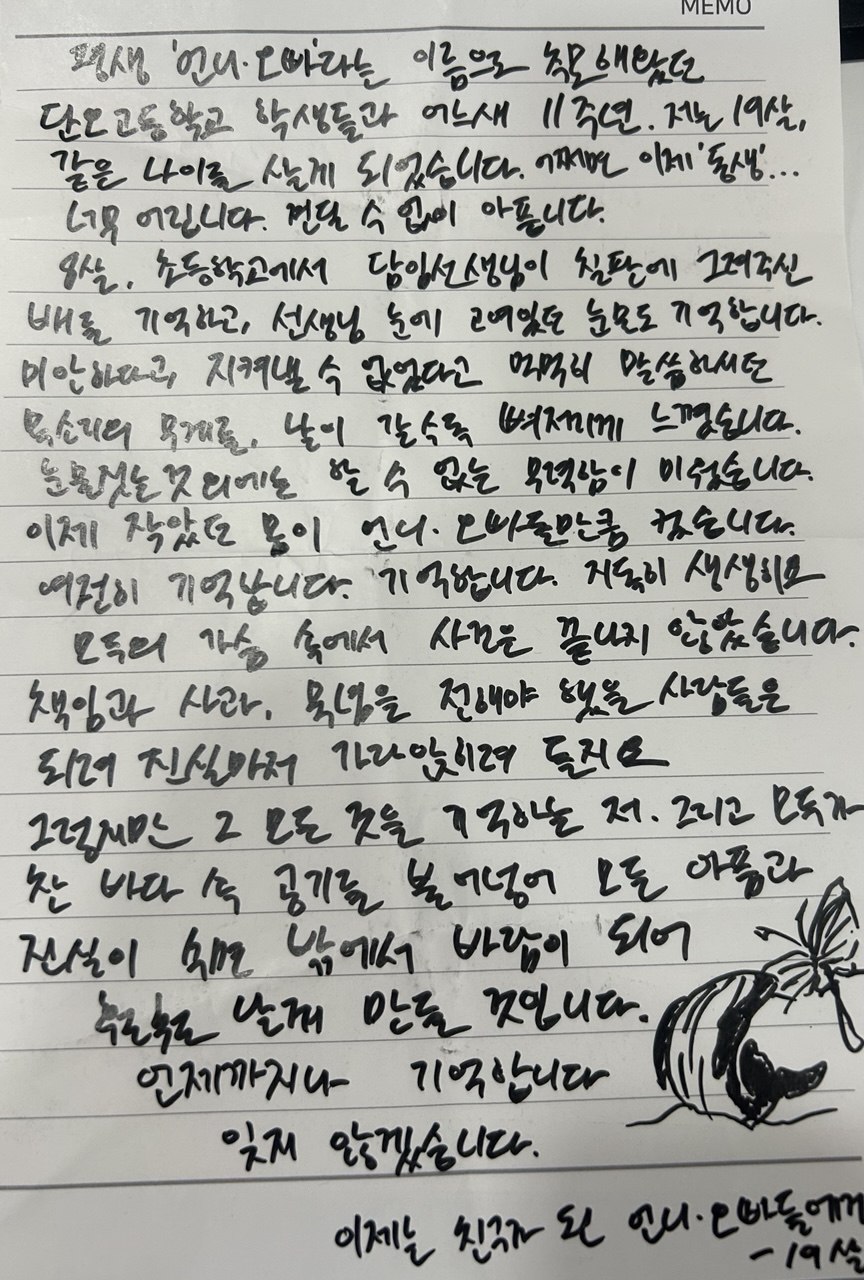 MEMO
평생 '언니·오빠'라는 이름으로 추모해왔던
단원고등학교 학생들과 어느새 11주년. 저는 19살,
같은 나이를 살게 되었습니다. 어쩌면 이제 '동생'...
너무 어립니다. 견딜 수 없이 아픕니다.
8살, 초등학교에서 담임선생님이 칠판에 그려주신
배를 기억하고, 선생님 눈에 고여있던 눈물도 기억합니다.
미안하다고, 지켜낼 수 없었다고 먹먹히 말씀하시던
목소리의 무게를, 날이 갈수록 뼈저리게 느꼈습니다.
눈물짓는 것 외에는 할 수 없는 무력함이 미웠습니다.
이제 작았던 몸이 언니·오빠들만큼 컸습니다.
여전히 기억납니다. 기억합니다. 지독히 생생히요
모두의 가슴 속에서 사건은 끝나지 않았습니다.
책임과 사과, 묵념을 전해야 했을 사람들은
되려 진실마저 가라앉히려 들지요
그렇지만 그 모든 것을 기억하는 저. 그리고 모두가
찬 바다 속 공기를 불어넣어 모든 아픔과
진실이 수면 밖에서 바람이 되어
훨훨 날게 만들 것입니다.
언제까지나 기억합니다
잊지 않겠습니다.
이제는 친구가 된 언니·오빠들에게
- 19살